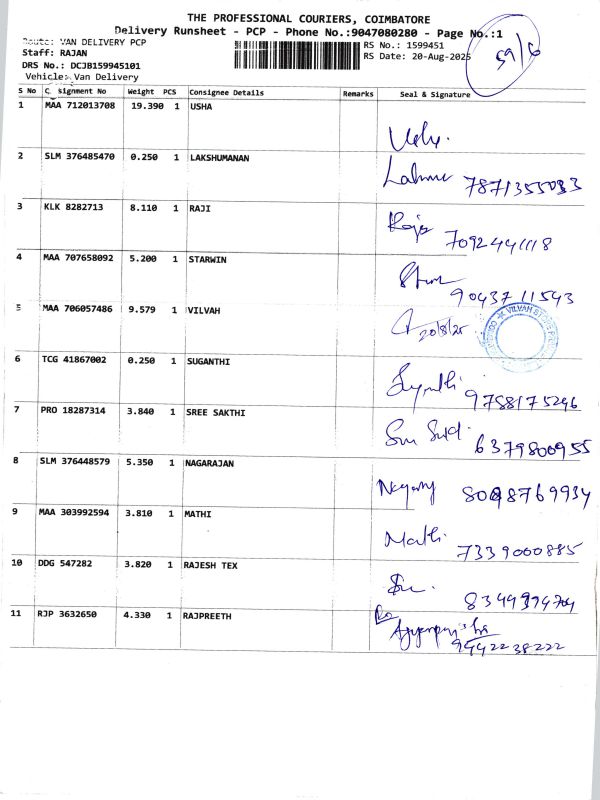 THE PROFESSIONAL COURIERS, COIMBATORE
Delivery Runsheet - PCP - Phone No.:9047080280 - Page No.:1
Route: VAN DELIVERY PCP
RS No.: 1599451
Staff: RAJAN
RS Date: 20-Aug-2025
59/6
DRS No.: DCJB159945101
Vehicle: Van Delivery
S No C signment No Weight PCS Consignee Details Remarks Seal & Signature
1 MAA 712013708 19.390 1 USHA
Usha.
2 SLM 376485470 0.250 1 LAKSHUMANAN
7871355033
3 KLK 8282713 8.110 1 RAJI
Raji
7092441118
4 MAA 707658092 5.200 1 STARWIN
9043711543
5 MAA 706057486 9.579 1 VILVAH
20/8/25
VILVAH STORE
6 TCG 41867002 0.250 1 SUGANTHI
Suganthi
9788175246
7 PRO 18287314 3.840 1 SREE SAKTHI
6379800955
8 SLM 376448579 5.350 1 NAGARAJAN
8098769934
9 MAA 303992594 3.810 1 MATHI
Mathi
7339000885
10 DDG 547282 3.820 1 RAJESH TEX
11 RJP 3632650 4.330 1 RAJPREETH
9442238222